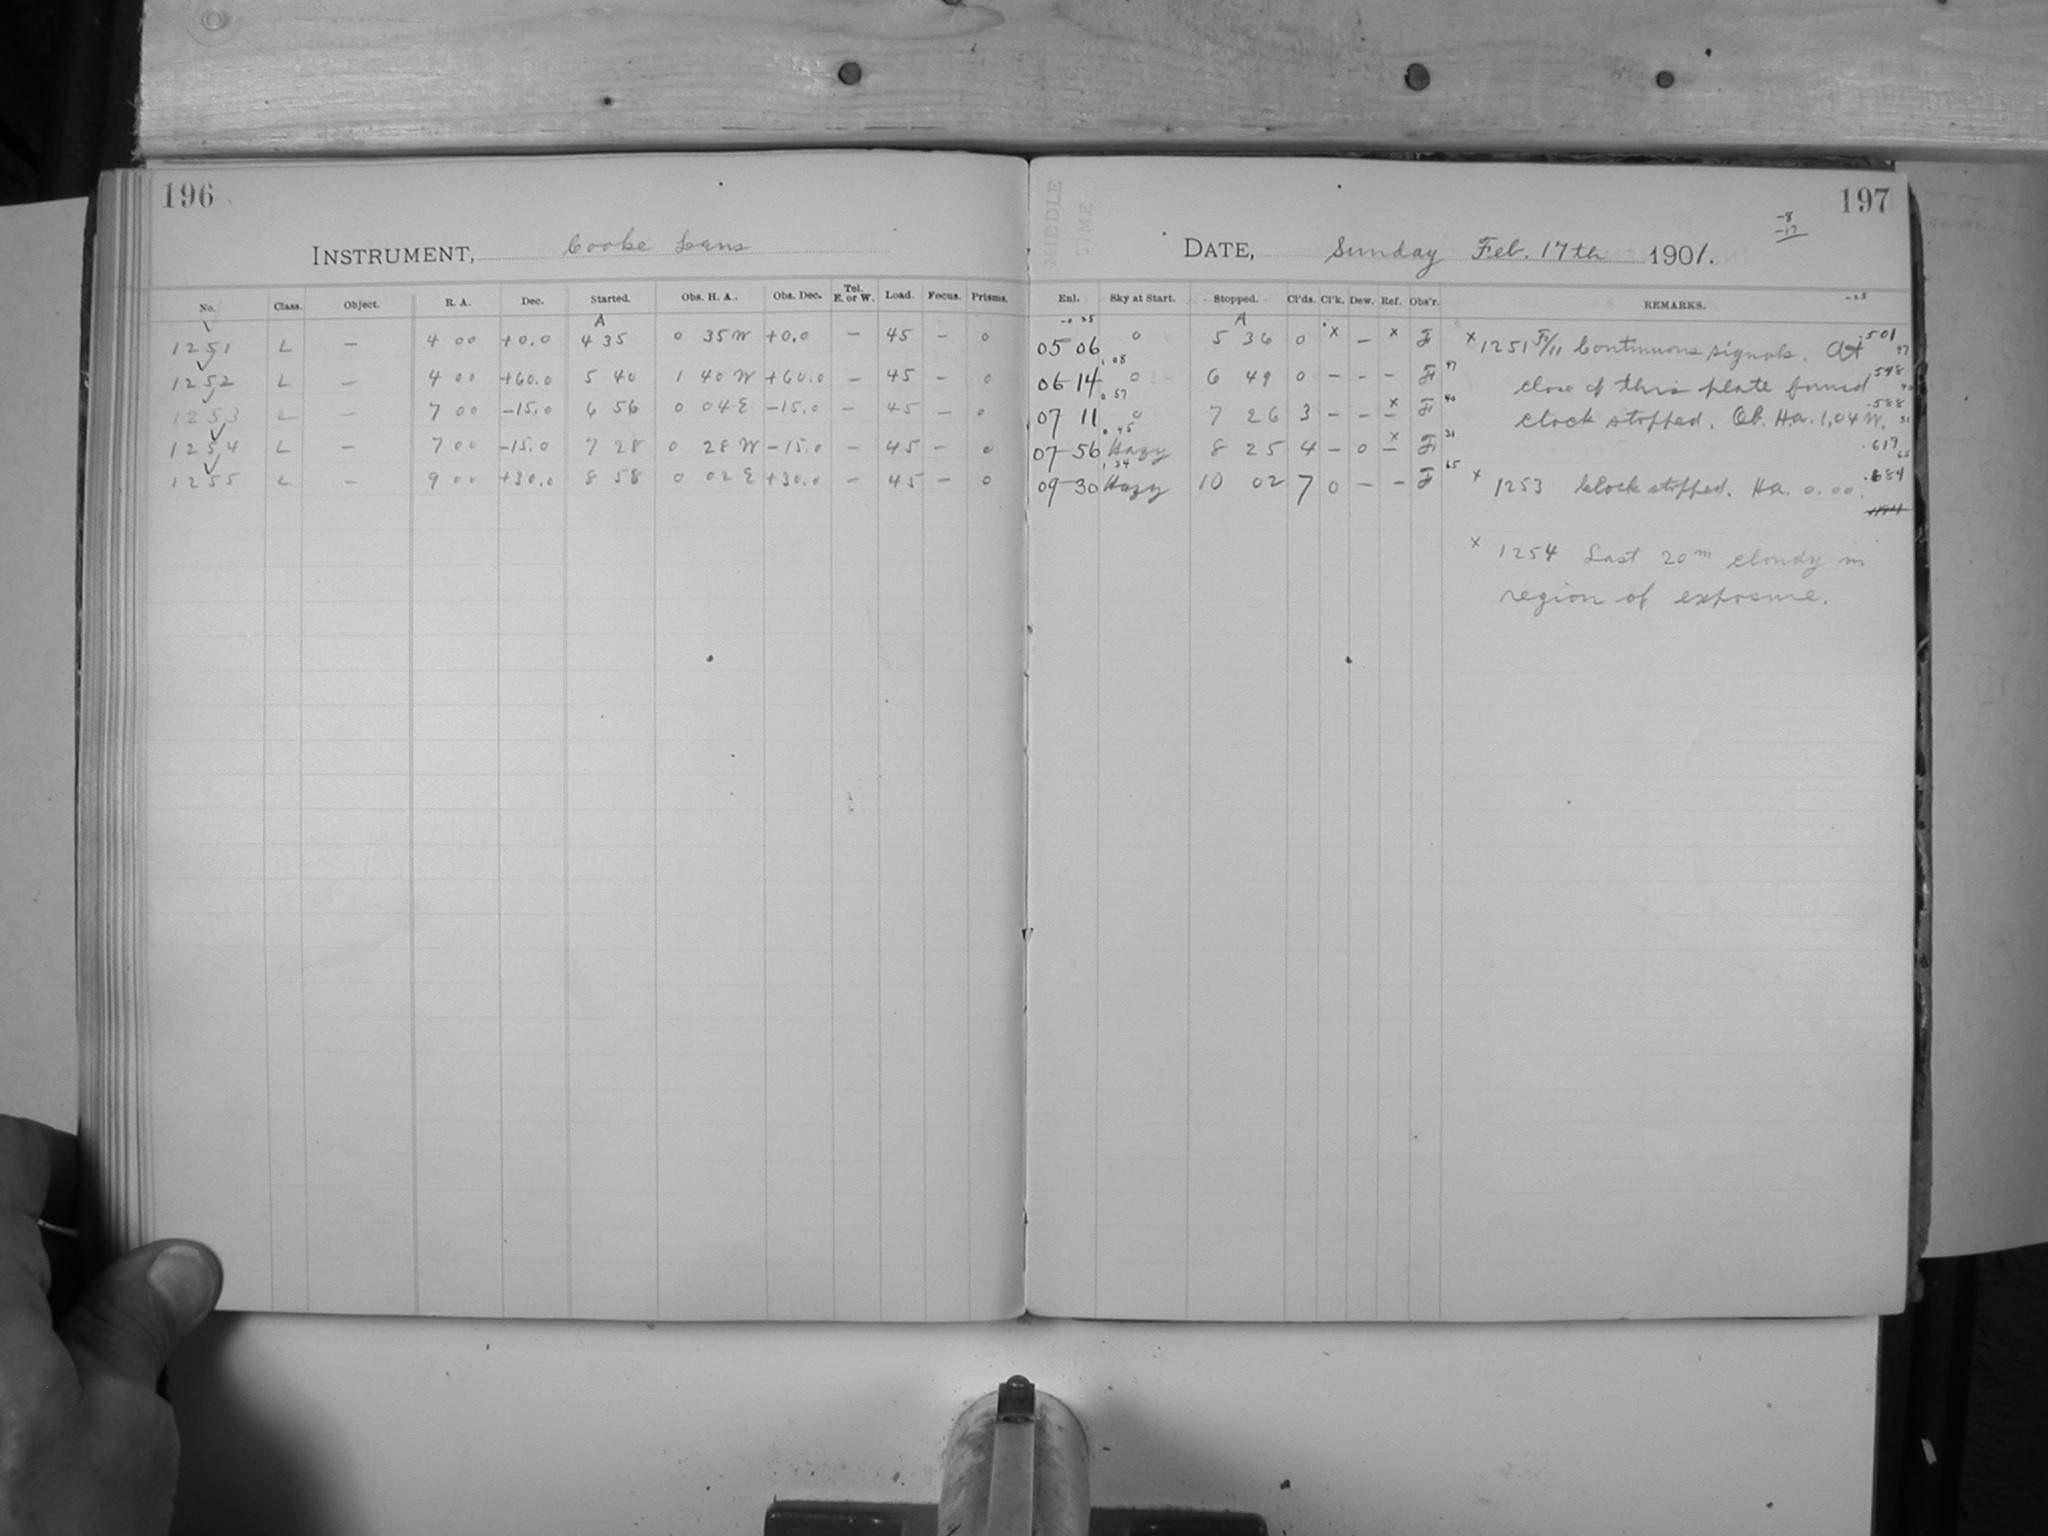 196
INSTRUMENT, Cooke Lens
No. Class. Object. R. A. Dec. Started. Obs. H. A. Obs. Dec. Tel. E. or W. Load. Focus. Prisms.
A
1251 L — 4 00 +0.0 4 35 0 35 W +0.0 — 45 — 0
1252 L — 4 00 +60.0 5 40 1 40 W +60.0 — 45 — 0
1253 L — 7 00 -15.0 6 56 0 04 E -15.0 — 45 — 0
1254 L — 7 00 -15.0 7 28 0 28 W -15.0 — 45 — 0
1255 L — 9 00 +30.0 8 58 0 02 E +30.0 — 45 — 0
197
-8
-17
MIDDLE
TIME
DATE, Sunday Feb. 17th 1901.
Enl. Sky at Start. Stopped. Cl'ds. Cl'k. Dew. Ref. Obs'r. REMARKS.
-25
A
05 06 0 5 36 0 x — x F x 1251 Continuous signals. At .501
06 14 0 6 49 0 - - - F 47 close of this plate found .548
07 11 0 7 26 3 - - x F 40 clock stopped. Ob. Ha. 1.04 W. .588
07 56 Hazy 8 25 4 - 0 x F 31 .619
09 30 Hazy 10 02 7 0 - - F 65 x 1253 Clock stopped. Ha. 0.00. .684
x 1254 Last 20m cloudy in
region of exposure.